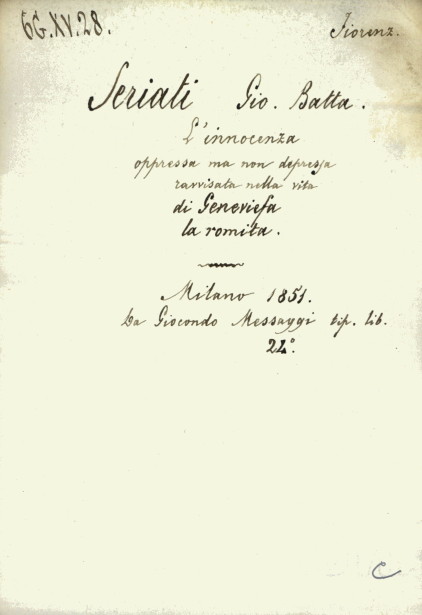 6G.XV.28.
Fiorenz.
Seriati Gio. Batta.
L'innocenza
oppressa ma non depressa
ravvisata nella vita
di Genevieffa
la romita.
Milano 1851.
Da Giocondo Messaggi tip. lib.
24°.
C